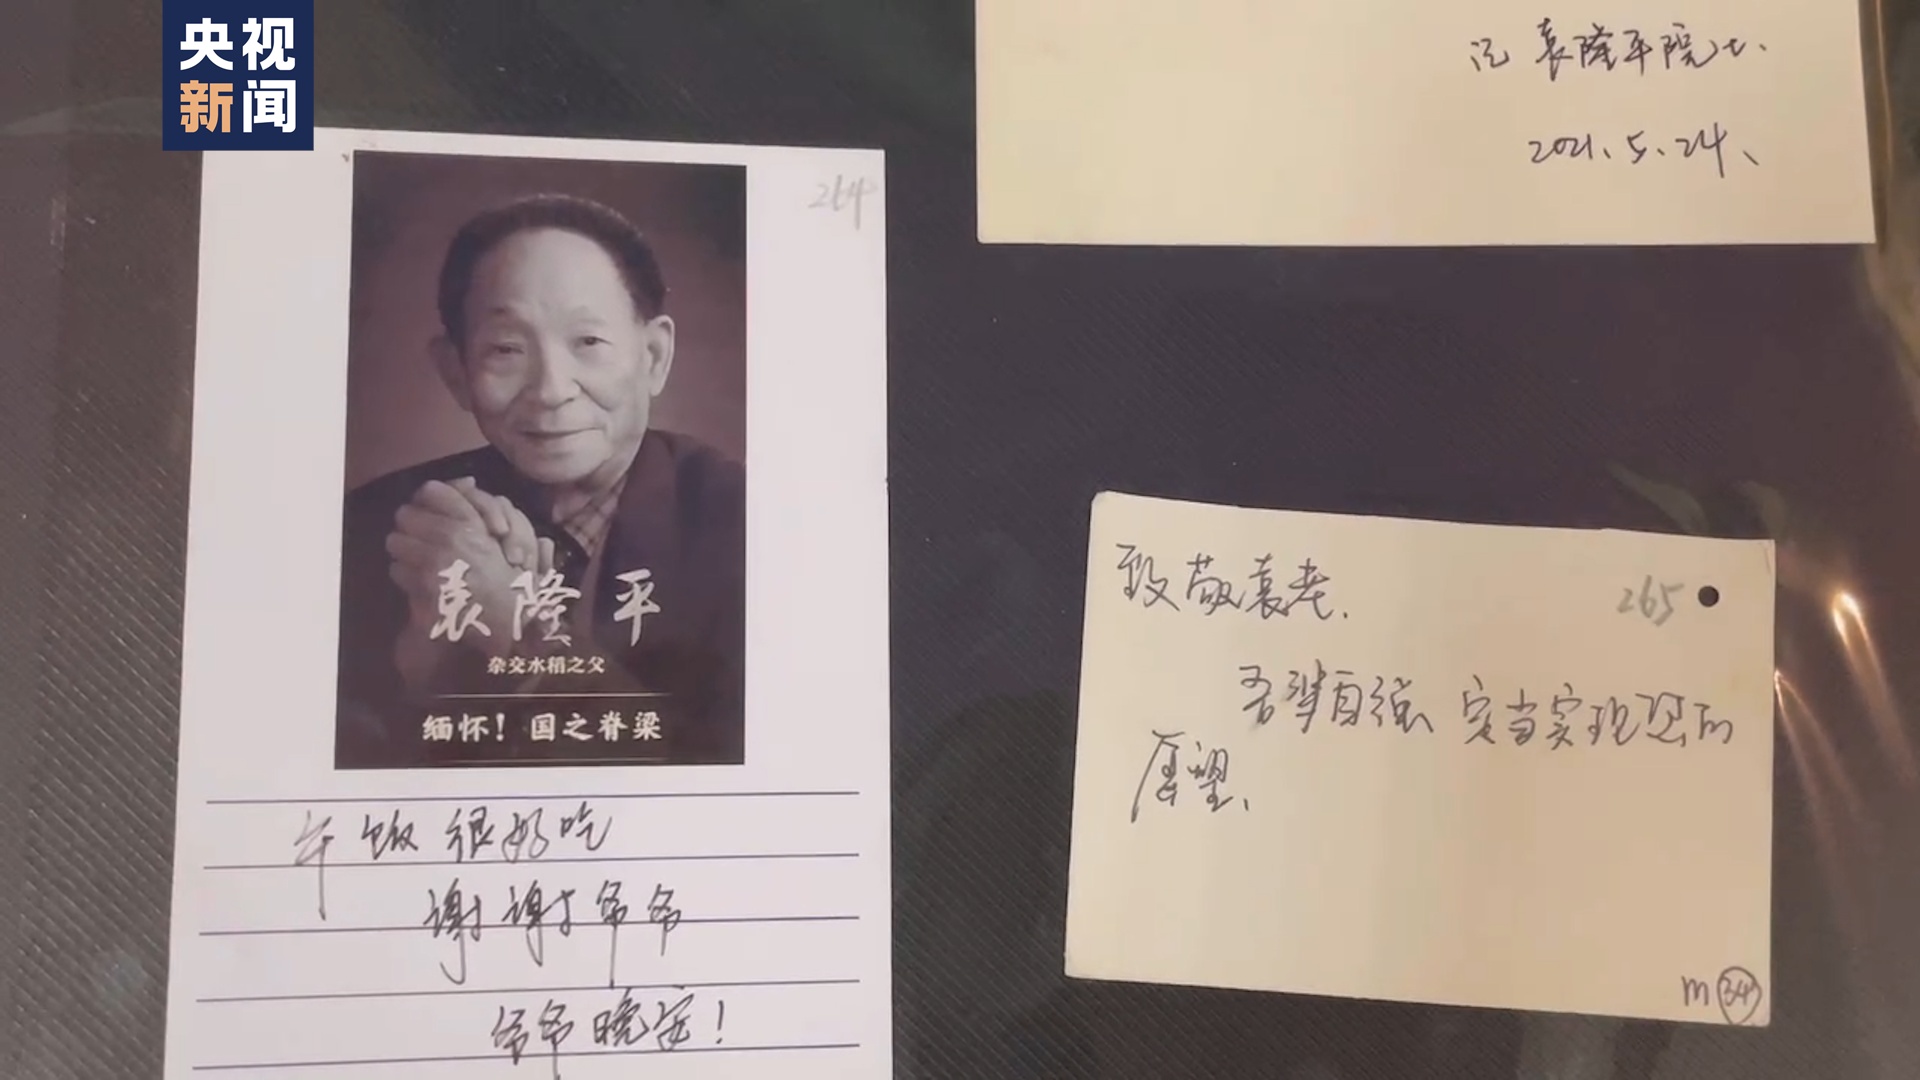 央视
新闻
记 袁隆平院士.
2021.5.24、
264
袁隆平
杂交水稻之父
缅怀！国之脊梁
午饭很好吃
谢谢爷爷
爷爷晚安！
265
致敬袁老.
吾辈自强 定当实现您的
愿望、
m 34